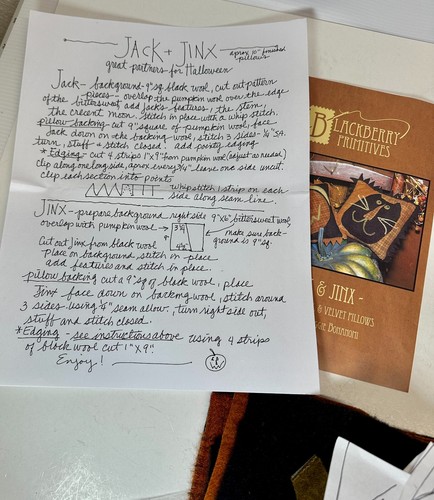 JACK + JINX - aprox 10" finished pillows
great partners for Halloween
Jack - background - 9" sq. black wool, cut out pattern
pieces - overlap the pumpkin wool over the edge
of the bittersweet, add Jack's features, the stem,
the crecent moon. Stitch in place with a whip stitch.
pillow backing - cut 9" square of pumpkin wool, face
Jack down on the backing wool, stitch 3 sides - 1/4" SA.
turn, stuff + stitch closed. add pointy edging
* Edging - cut 4 strips 1"x9" from pumpkin wool (adjust as needed)
clip along one long side, aprox every 3/4" leave one side uncut.
Clip each section into points
whip stitch 1 strip on each
side along seam line.
JINX - prepare background right side 9"x6" bittersweet wool,
overlap with pumpkin wool → 3 1/2
4 1/2
make sure back-
ground is 9" sq.
Cut out Jinx from black wool
place on background, stitch in place
add features and stitch in place.
pillow backing cut a 9" sq of black wool, place
Jinx face down on backing wool, stitch around
3 sides using 1/4" seam allow. turn right side out,
stuff and stitch closed.
* Edging - see instructions above using 4 strips
of black wool cut 1" x 9".
Enjoy!
BLACKBERRY
PRIMITIVES
& JINX -
& VELVET PILLOWS
BONANOMI